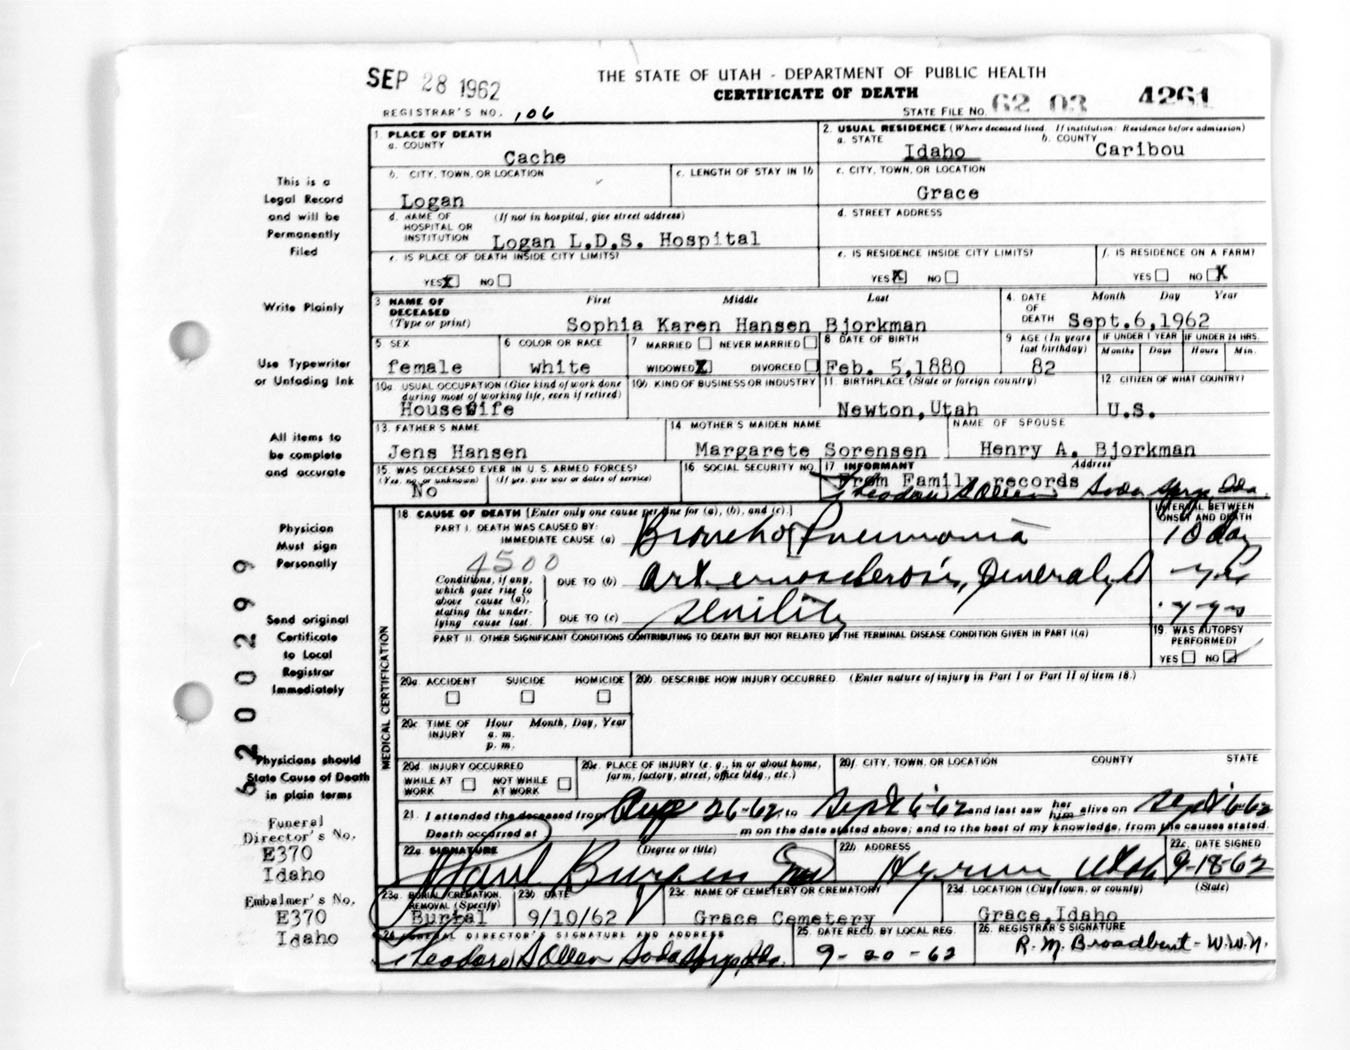 SEP 28 1962
THE STATE OF UTAH - DEPARTMENT OF PUBLIC HEALTH
CERTIFICATE OF DEATH
REGISTRAR'S NO. 106
STATE FILE NO. 62 03 4261
1. PLACE OF DEATH
a. COUNTY
Cache
2. USUAL RESIDENCE (Where deceased lived. If institution: Residence before admission)
a. STATE Idaho b. COUNTY Caribou
b. CITY, TOWN, OR LOCATION
Logan
c. LENGTH OF STAY IN 1b
c. CITY, TOWN, OR LOCATION
Grace
d. NAME OF HOSPITAL OR INSTITUTION (If not in hospital, give street address)
Logan L.D.S. Hospital
d. STREET ADDRESS
e. IS PLACE OF DEATH INSIDE CITY LIMITS?
YES X NO
e. IS RESIDENCE INSIDE CITY LIMITS?
YES X NO
f. IS RESIDENCE ON A FARM?
YES NO X
3 NAME OF DECEASED (Type or print) First Middle Last
Sophia Karen Hansen Bjorkman
4. DATE OF DEATH Month Day Year
Sept.6,1962
5 SEX
female
6 COLOR OR RACE
white
7 MARRIED NEVER MARRIED
WIDOWED X DIVORCED
8 DATE OF BIRTH
Feb. 5,1880
9 AGE (In years last birthday)
82
IF UNDER 1 YEAR Months Days
IF UNDER 24 HRS. Hours Min.
10a USUAL OCCUPATION (Give kind of work done during most of working life, even if retired)
Housewife
10b. KIND OF BUSINESS OR INDUSTRY
11. BIRTHPLACE (State or foreign country)
Newton,Utah
12. CITIZEN OF WHAT COUNTRY?
U.S.
13. FATHER'S NAME
Jens Hansen
14 MOTHER'S MAIDEN NAME
Margarete Sorensen
NAME OF SPOUSE
Henry A. Bjorkman
15. WAS DECEASED EVER IN U.S. ARMED FORCES?
(Yes, no, or unknown) (If yes, give war or dates of service)
No
16 SOCIAL SECURITY NO.
17 INFORMANT Address
From Family records
Theodore S Olsen Soda Sprgs, Ida.
18 CAUSE OF DEATH [Enter only one cause per line for (a), (b), and (c).]
PART I. DEATH WAS CAUSED BY:
IMMEDIATE CAUSE (a) Broncho Pneumonia
INTERVAL BETWEEN ONSET AND DEATH
10 day
4500
Conditions, if any, which gave rise to above cause (a), stating the underlying cause last.
DUE TO (b) Arteriosclerosis, Generalized
DUE TO (c) Senility
PART II. OTHER SIGNIFICANT CONDITIONS CONTRIBUTING TO DEATH BUT NOT RELATED TO THE TERMINAL DISEASE CONDITION GIVEN IN PART I(a)
19. WAS AUTOPSY PERFORMED?
YES NO ✓
MEDICAL CERTIFICATION
20a ACCIDENT SUICIDE HOMICIDE
20b. DESCRIBE HOW INJURY OCCURRED. (Enter nature of injury in Part I or Part II of item 18.)
20c TIME OF INJURY Hour Month, Day, Year
a. m.
p. m.
20d INJURY OCCURRED
WHILE AT WORK NOT WHILE AT WORK
20e. PLACE OF INJURY (e. g., in or about home, farm, factory, street, office bldg., etc.)
20f. CITY, TOWN, OR LOCATION COUNTY STATE
21. I attended the deceased from Aug 26-62, to Sept 6-62 and last saw her him alive on Sept 6-62
Death occurred at m on the date stated above; and to the best of my knowledge, from the causes stated.
22a SIGNATURE (Degree or title)
Paul Burgess MD
22b ADDRESS
Hyrum, Utah
22c. DATE SIGNED
9-18-62
23a BURIAL, CREMATION, REMOVAL (Specify)
Burial
23b DATE
9/10/62
23c NAME OF CEMETERY OR CREMATORY
Grace Cemetery
23d. LOCATION (City, town, or county) (State)
Grace,Idaho
24. FUNERAL DIRECTOR'S SIGNATURE AND ADDRESS
Theodore S Olsen Soda Sprgs, Ida.
25. DATE RECD. BY LOCAL REG.
9-20-62
26. REGISTRAR'S SIGNATURE
R. M. Broadbent - W.W.N.
This is a
Legal Record
and will be
Permanently
Filed
Write Plainly
Use Typewriter
or Unfading Ink
All items to
be complete
and accurate
Physician
Must sign
Personally
Send original
Certificate
to Local
Registrar
Immediately
Physicians should
State Cause of Death
in plain terms
Funeral
Director's No.
E370
Idaho
Embalmer's No.
E370
Idaho
62000299